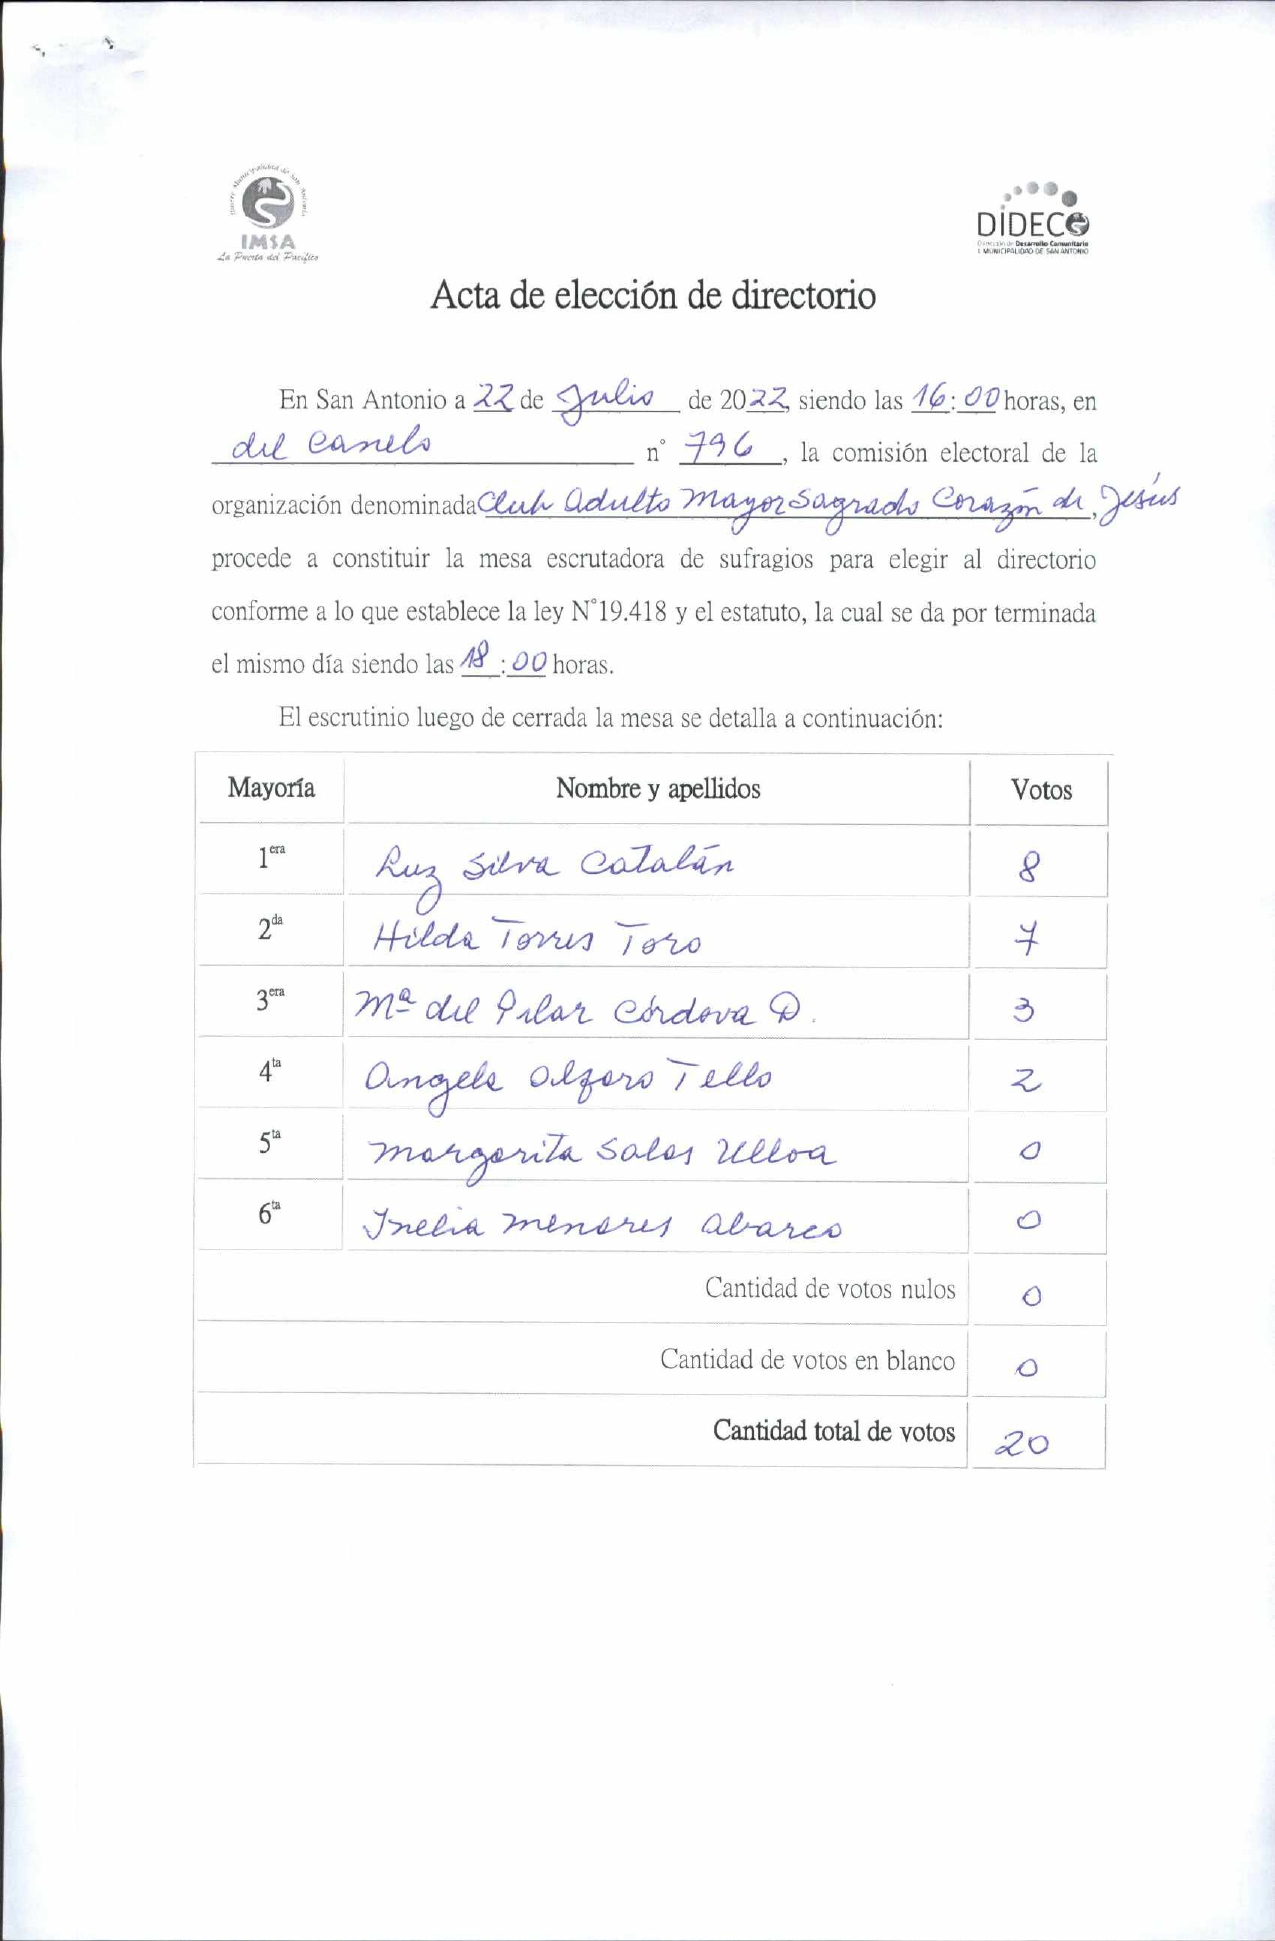 Ilustre Municipalidad de San Antonio
IMSA
La Puerta del Pacífico
DIDECO
Dirección de Desarrollo Comunitario
I. MUNICIPALIDAD DE SAN ANTONIO
Acta de elección de directorio
En San Antonio a 22 de Julio de 2022 siendo las 16:00 horas, en
del Canelo n° 796, la comisión electoral de la
organización denominada Club Adulto Mayor Sagrado Corazón de, Jesús
procede a constituir la mesa escrutadora de sufragios para elegir al directorio
conforme a lo que establece la ley N°19.418 y el estatuto, la cual se da por terminada
el mismo día siendo las 18:00 horas.
El escrutinio luego de cerrada la mesa se detalla a continuación:
Mayoría Nombre y apellidos Votos
1era Luz Silva Catalán 8
2da Hilda Torres Toro 7
3era Mª del Pilar Córdova D. 3
4ta Angela Alfaro Tello 2
5ta Margarita Salas Ulloa 0
6ta Inelia Menares Abarca 0
Cantidad de votos nulos 0
Cantidad de votos en blanco 0
Cantidad total de votos 20